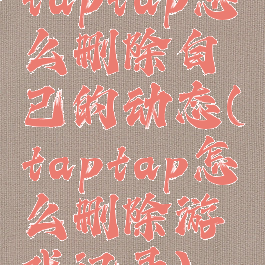 taptap怎
么删除自
己的动态(
taptap怎
么删除游
戏记录)